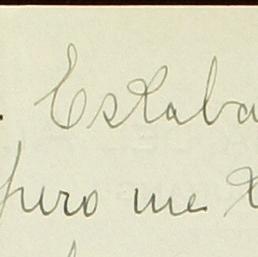 Estaba
pero me